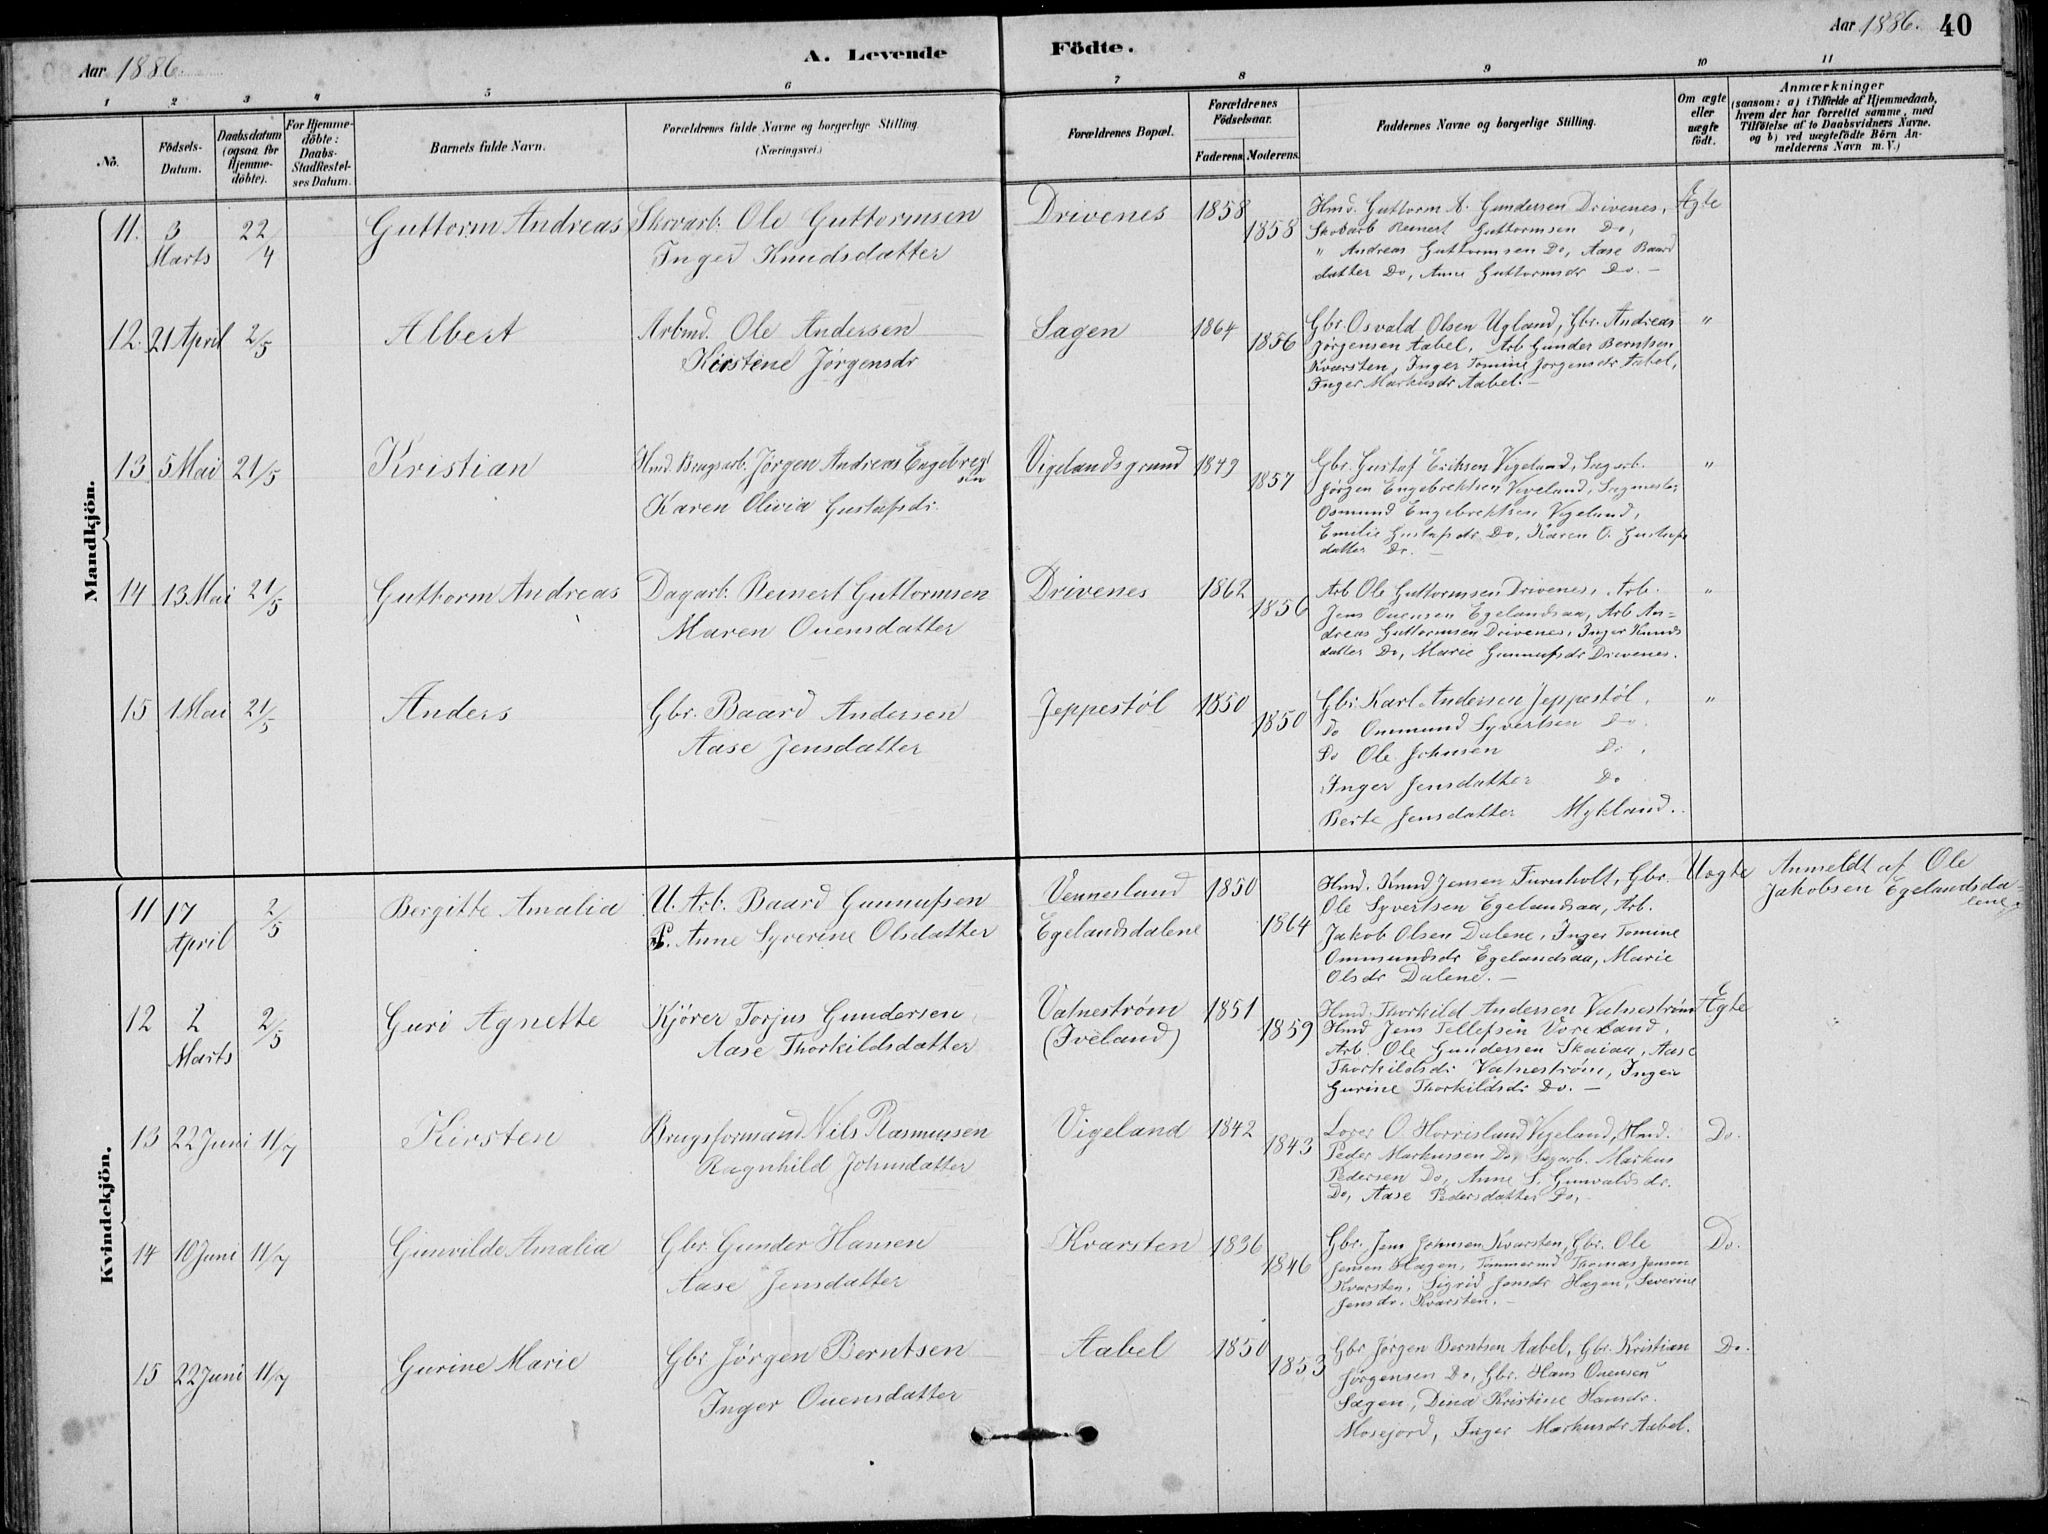 Aar 1886.
A. Levende
Födte.
Aar 1886.
40
1 2 3 4 5 6 7 8 9 10 11
No.
Födsels-
Datum.
Daabsdatum
(ogsaa for
Hjemme-
döbte).
For Hjemme-
döbte:
Daabs-
Stadfæstel-
ses Datum.
Barnets fulde Navn.
Forældrenes fulde Navne og borgerlige Stilling
(Næringsvei.)
Forældrenes Bopæl.
Forældrenes
Födselsaar.
Faderens
Moderens
Faddernes Navne og borgerlige Stilling.
Om ægte
eller
uægte
födt.
Anmærkninger
(saasom: a) i Tilfælde af Hjemmedaab,
hvem der har forrettet samme, med
Tilföielse af to Daabsvidners Navne,
og b) ved uægtefödte Börn An-
melderens Navn m. V.)
Mandkjön.
11. 3 Marts 22/4 Guttorm Andreas
Skovarb. Ole Guttormsen
Inger Knudsdatter
Drivenes 1858 1858
Hmd. Guttorm A. Gundersen Drivenes,
Skovarb Reinert Guttormsen Do,
" Andreas Guttormsen Do, Aase Baard
datter Do, Anne Guttormsdr Do. -
Ægte
12. 21 April 2/5 Albert
Arbmd. Ole Andersen
Kirstine Jørgensdr
Sagen 1864 1856
Gbr. Osvald Olsen Ugland, Gbr. Andreas
Jørgensen Aabel, Arb Gunder Berntsen
Kvarsten, Inger Tomine Jørgensdr Aabel,
Inger Markusdr Aabel. -
"
13 5 Mai 21/5 Kristian
Hmd. Brugsarb. Jørgen Andreas Engebregt
sen
Karen Olivia Gustafsdr.
Vigelandsgrund 1849 1857
Gbr. Gustaf Eriksen Vigeland, Sagarb.
Jørgen Engebrektsen Vigeland, Sagmester
Osmund Engebrektsen Vigeland,
Emilie Gustafsdr Do, Karen O. Gustafs
datter Do. -
"
14 13 Mai 21/5 Guttorm Andreas
Dagarb. Reinert Guttormsen
Maren Ouensdatter
Drivenes 1862 1856
Arb Ole Guttormsen Drivenes, Arb.
Jens Ouensen Egelandsaa, Arb An-
dreas Guttormsen Drivenes, Inger Knuds
datter Do, Marie Gunnufsdr Drivenes.
"
15 1 Mai 21/5 Anders
Gbr. Baard Andersen
Aase Jensdatter
Jeppestøl 1850 1850
Gbr. Karl Andersen Jeppestøl,
Do Ommund Syvertsen Do.
Do Ole Johnsen Do.
Inger Jensdatter Do
Berte Jensdatter Mykland.
"
Kvindekjön.
11 17 April 2/5 Bergitte Amalia
U. Arb. Baard Gunnufsen
P. Anne Syverine Olsdatter
Vennesland
Egelandsdalene
1850 1864
Hmd. Knud Jensen Furuholt, Gbr.
Ole Syvertsen Egelandsaa, Arb.
Jakob Olsen Dalene, Inger Tomine
Ommundsdr Egelandsaa, Marie
Olsdr Dalene. -
Uægte
Anmeldt af Ole
Jakobsen Egelandsda-
lene.
12 2 Marts 2/5 Guri Agnette
Kjører Torjus Gundersen
Aase Thorkildsdatter
Vatnestrøm
(Iveland)
1851 1859
Hmd. Thorkild Andersen Vatnestrøm
Hmd Jens Tellefsen Voreland,
Arb. Ole Gundersen Skaiaa, Aase
Thorkildsdr Vatnestrøm, Inger
Gurine Thorkildsdr Do. -
Ægte
13 22 Juni 11/7 Kirsten
Brugsformand Nils Rasmussen
Ragnhild Johnsdatter
Vigeland 1842 1843
O. Horrisland Vigeland, Hmd.
Peder Markussen Do, Sagarb. Markus
Pedersen Do, Anne S. Gunvaldsdr.
Do, Aase Pedersdatter Do, -
Do.
14 10 Juni 11/7 Gunvilde Amalia
Gbr. Gunder Hansen
Aase Jensdatter
Kvarsten 1836 1846
Gbr. Jens Johnsen Kvarsten, Gbr. Ole
Jensen Hagen, Tømmermd Thomas Jensen
Kvarsten, Sigrid Jensdr Hagen, Severine
Jensdr. Kvarsten. -
Do.
15 22 Juni 11/7 Gurine Marie
Gbr Jørgen Berntsen
Inger Ouensdatter
Aabel 1850 1853
Gbr Jørgen Berntsen Aabel, Gbr. Kristian
Jørgensen Do, Gbr. Hans Ouensen
Sagen, Dina Kristine Hansdr.
Mosejord, Inger Markusdr Aabel.
Do.